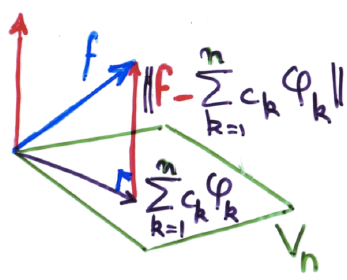 f
‖f - ∑_{k=1}^{n} c_k φ_k‖
∑_{k=1}^{n} c_k φ_k
V_n